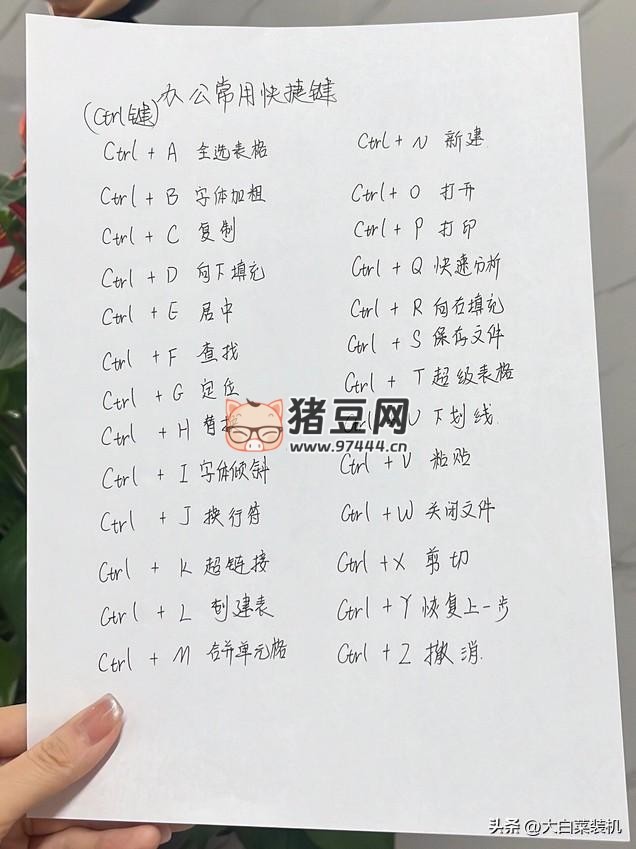 办公常用快捷键
(Ctrl键)
Ctrl + A 全选表格
Ctrl + B 字体加粗
Ctrl + C 复制
Ctrl + D 向下填充
Ctrl + E 居中
Ctrl + F 查找
Ctrl + G 定位
Ctrl + H 替
Ctrl + I 字体倾斜
Ctrl + J 换行符
Ctrl + K 超链接
Ctrl + L 创建表
Ctrl + M 合并单元格
Ctrl + N 新建
Ctrl + O 打开
Ctrl + P 打印
Ctrl + Q 快速分析
Ctrl + R 向右填充
Ctrl + S 保存文件
Ctrl + T 超级表格
U 下划线
Ctrl + V 粘贴
Ctrl + W 关闭文件
Ctrl + X 剪切
Ctrl + Y 恢复上一步
Ctrl + Z 撤消
猪豆网
www.97444.cn
头条 @大白菜装机